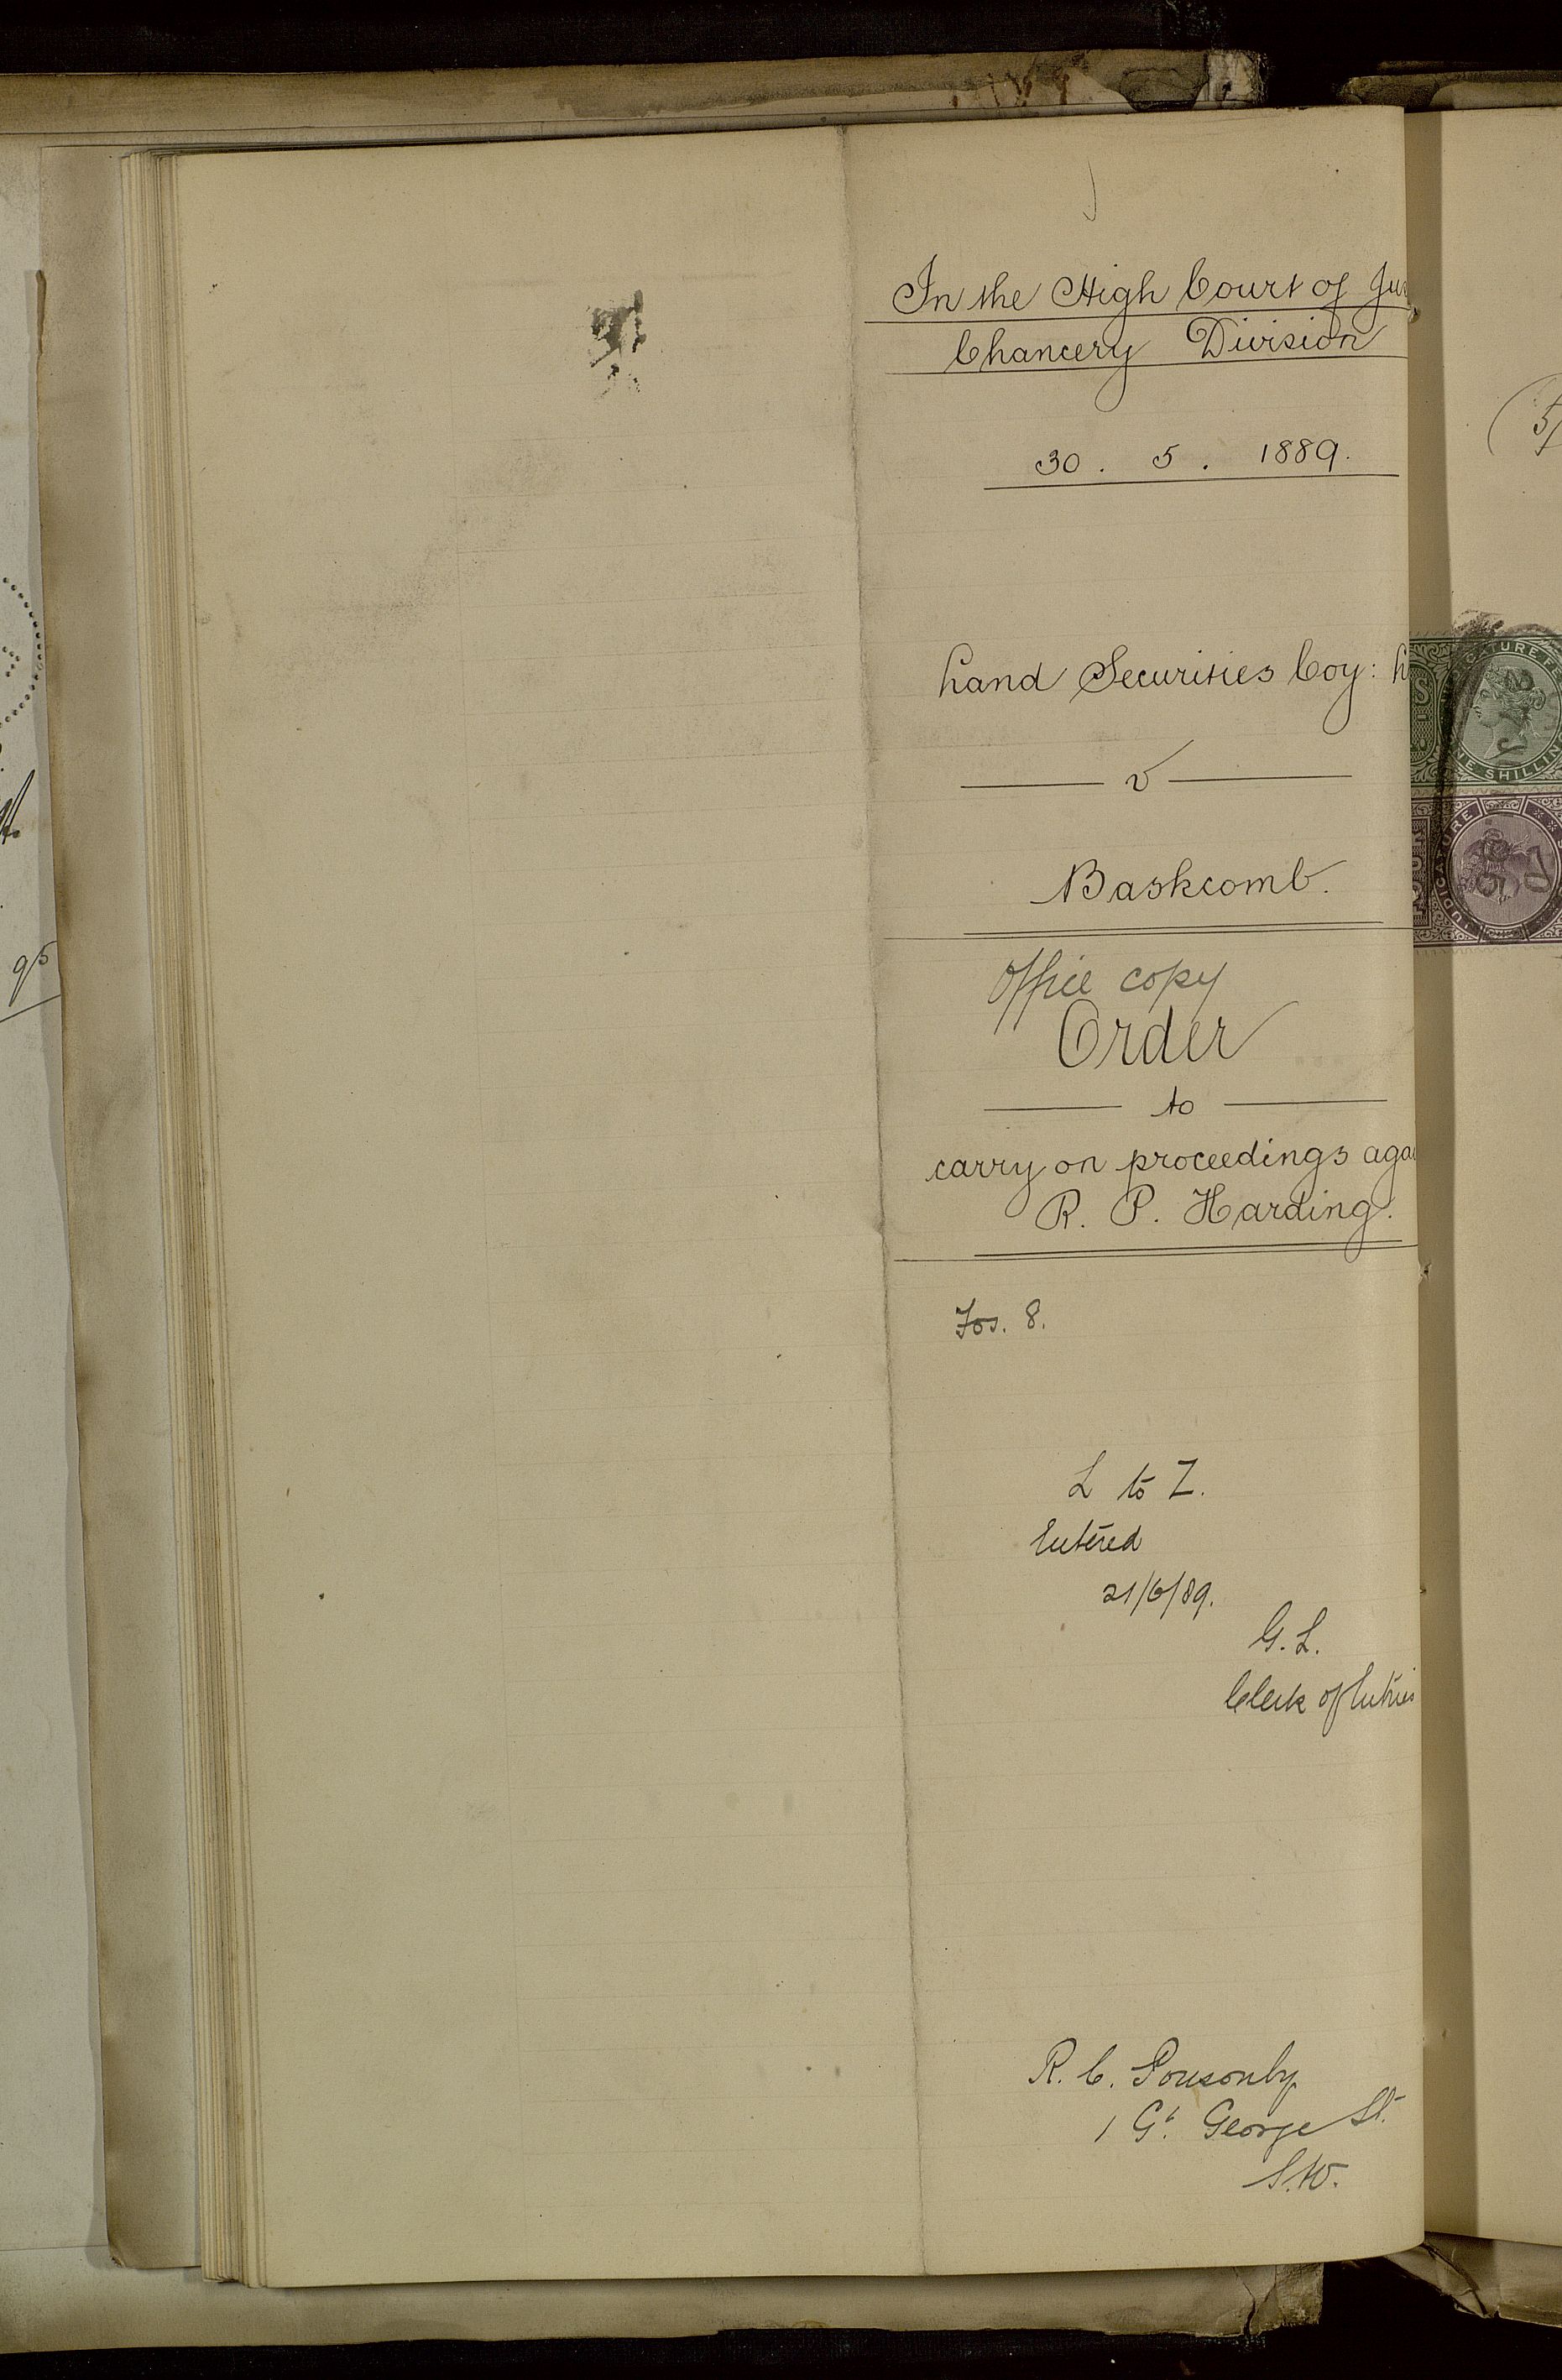 In the High Court of Jus
Chancery Division
30 . 5 . 1889.
Land Securities Coy: L
v
Baskcomb.
Office copy
Order
to
carry on proceedings agai
R. P. Harding.
Fos. 8.
L to Z.
Entered
21/6/89.
G. L.
Clerk of Entries
R. C. Ponsonby
1 Gt. George St.
S.W.